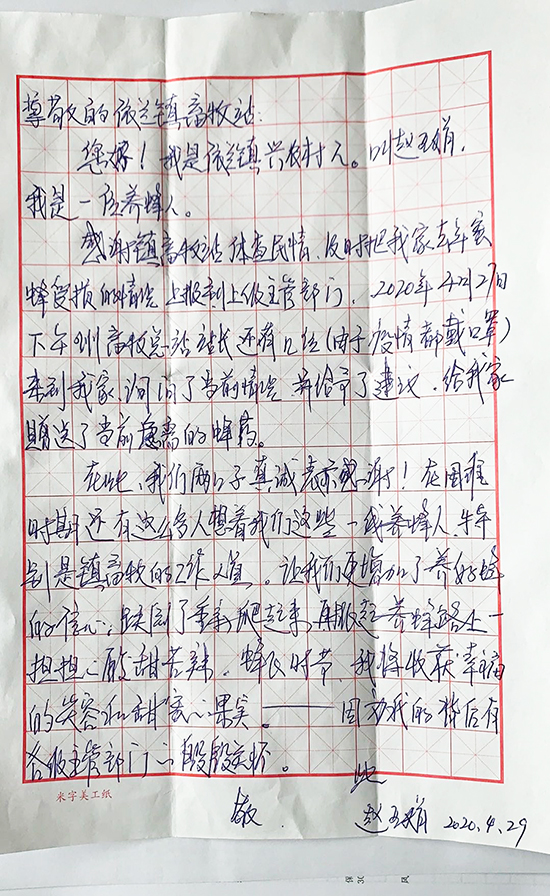 尊敬的依兰镇畜牧站:
您好！我是依兰镇兴农村人。叫赵玉娟，
我是一位养蜂人。
感谢镇畜牧站体查民情、及时把我家去年蜜
蜂受损的情况上报到上级主管部门。2020年4月27日
下午州畜牧总站站长还有几位（由于疫情都戴口罩）
来到我家、询问了当前情况并给予了建议，给我家
赠送了当前急需的蜂药。
在此、我们两口子真诚表示感谢！在困难
时期还有这么多人想着我们这些一线养蜂人、特
别是镇畜牧的工作人员。让我们更增加了养好蜂
的信心；跌倒了重新爬起来，再走养蜂路上一
担担心酸甜苦辣。蜂飞时节、我将收获幸福
的笑容和甜蜜果实。——因为我的背后有
各级主管部门的殷殷关怀。
此
敬。
赵玉娟 2020.4.29
米字美工纸